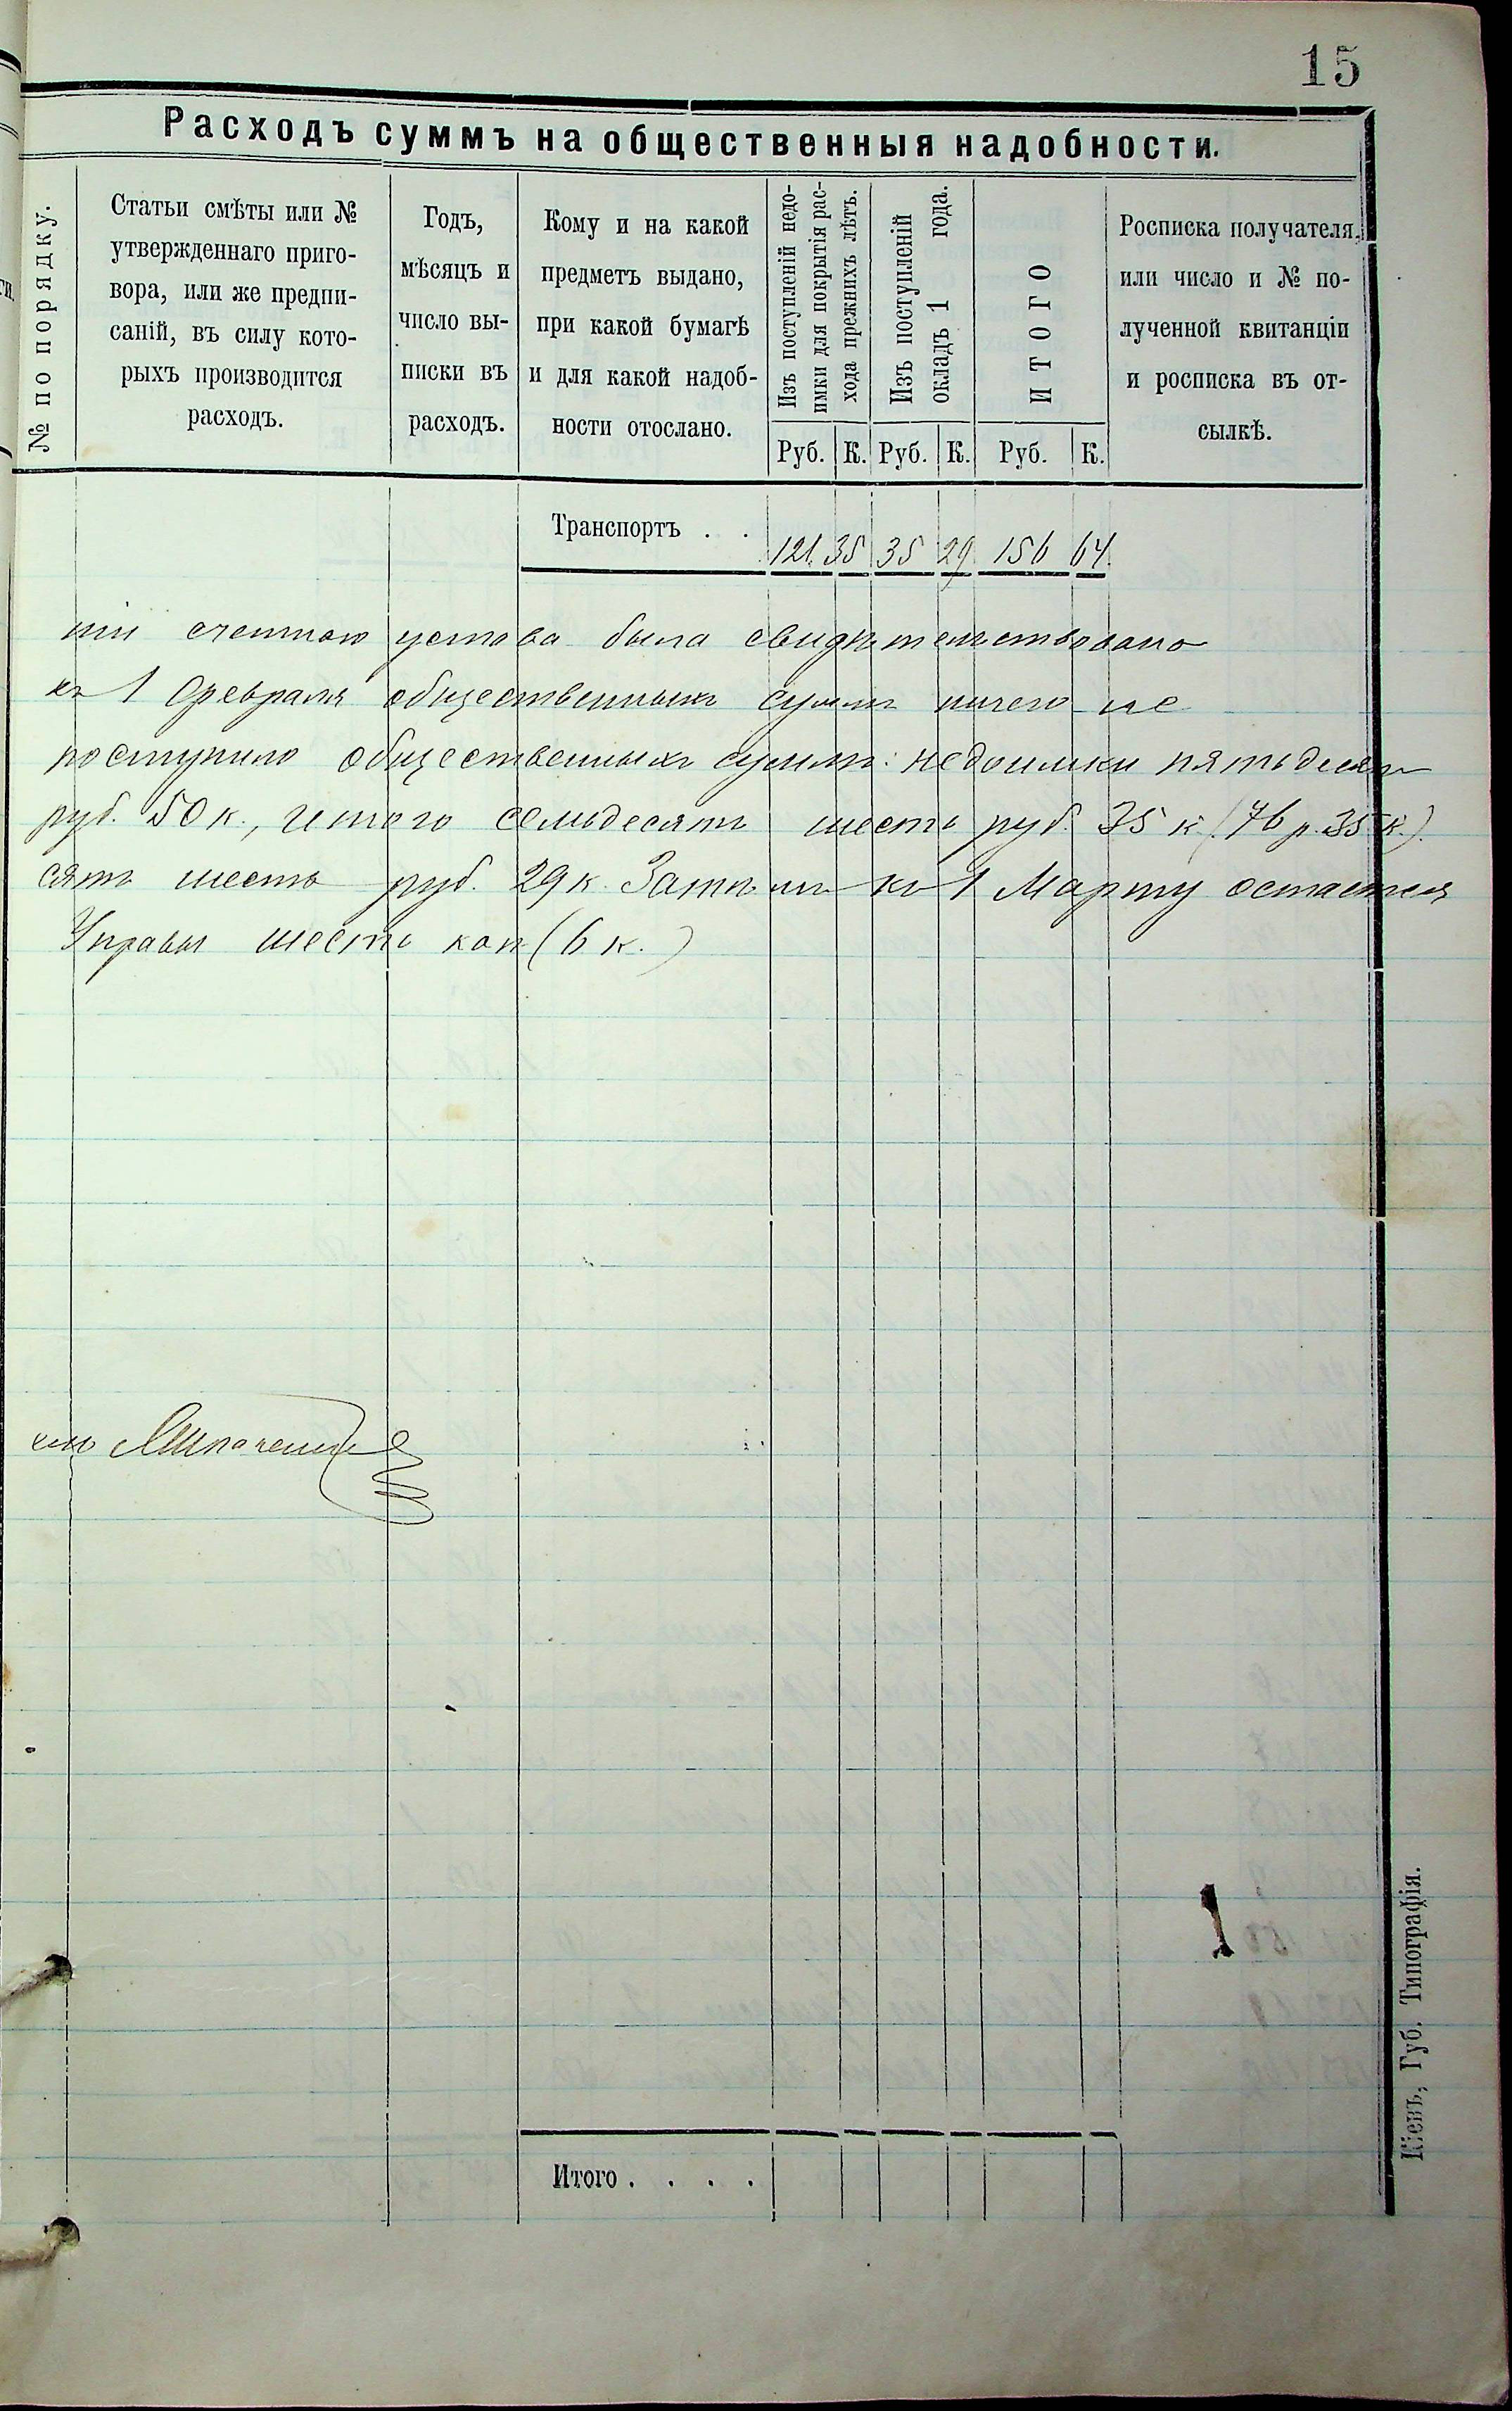 15
Расходъ суммъ на общественныя надобности.
№ по порядку.
Статьи смѣты или №
утвержденнаго приго-
вора, или же предпи-
саній, въ силу кото-
рыхъ производится
расходъ.
Годъ,
мѣсяцъ и
число вы-
писки въ
расходъ.
Кому и на какой
предметъ выдано,
при какой бумагѣ
и для какой надоб-
ности отослано.
Изъ поступленій недо-
имки для покрытія рас-
хода прежнихъ лѣтъ.
Изъ поступленій
окладъ 1 года.
ИТОГО
Росписка получателя,
или число и № по-
лученной квитанціи
и росписка въ от-
сылкѣ.
Руб. К. Руб. К. Руб. К.
Транспортъ . . 121 35 35 29 156 64
счетнаго устава была свидѣтельствована
къ 1 Февраля общественныхъ суммъ ничего не
поступило общественныхъ суммъ: недоимки пятьдесятъ
руб. 50 к., итого семьдесятъ шесть руб. 35 к. (76 р. 35 к.).
сятъ шесть руб. 29 к. Затѣмъ къ 1 Марту остается
Управы шесть коп (6 к.)
1
Итого . . . .
Кіевъ, Губ. Типографія.